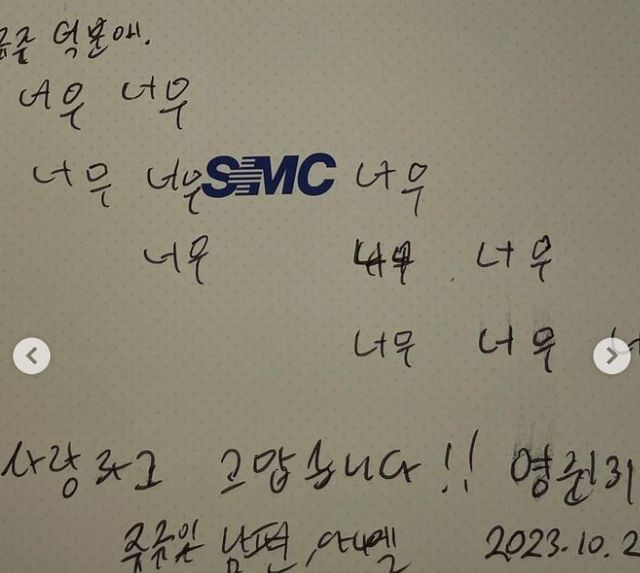 덕분에.
너무 너무
너무 너무 SIMC 너무
너무 너무
너무 너무
사랑하고 고맙습니다!! 영원히
남편,
2023.10.2